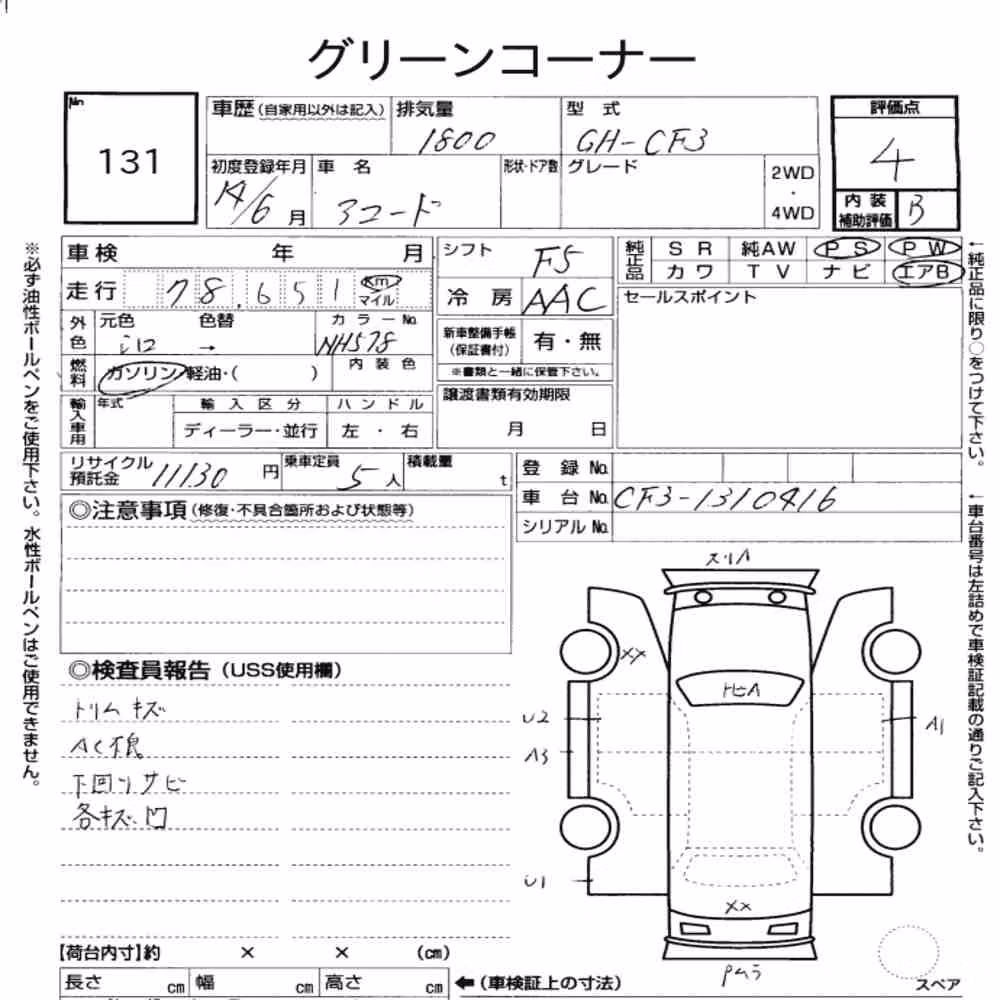 グリーンコーナー
No
131
車歴(自家用以外は記入)
排気量
1800
型 式
GH-CF3
評価点
4
初度登録年月
14/6月
車 名
アコード
形状・ドア数
グレード
2WD
・
4WD
内装補助評価
B
車検 年 月
走行 78,651 Km マイル
外色
元色
色替
シロ →
カラーNo.
NH578
燃料
ガソリン・軽油・( )
内装色
輸入車用
年式
輸入区分
ディーラー・並行
ハンドル
左 ・ 右
シフト
F5
冷房
AAC
新車整備手帳
(保証書付)
有・無
※書類と一緒に保管下さい。
譲渡書類有効期限
月 日
純正品
SR
純AW
PS
PW
カワ
TV
ナビ
エアB
セールスポイント
リサイクル預託金
11130円
乗車定員
5人
積載量
t
登録No.
車台No.
CF3-1310416
シリアルNo.
◎注意事項(修復・不具合箇所および状態等)
◎検査員報告(USS使用欄)
トリムキズ
AC不良
下回リサビ
各キズ、凹
スリA
XX
トビA
U2
A3
A1
U1
XX
スペア
【荷台内寸】約 × × (cm)
長さ cm
幅 cm
高さ cm
←(車検証上の寸法)
※必ず油性ボールペンをご使用下さい。水性ボールペンはご使用できません。
←純正品に限り○をつけて下さい。
←車台番号は左詰めで車検証記載の通りご記入下さい。